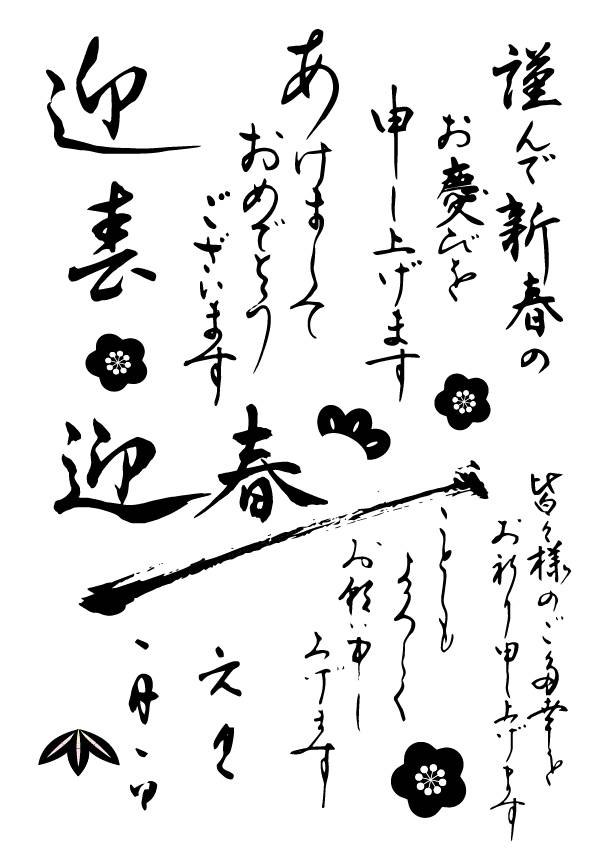 謹んで新春の
お慶びを
申し上げます
あけまして
おめでとう
ございます
迎春
迎春
皆々様のご多幸を
お祈り申し上げます
ことしも
よろしく
お願い申し
上げます
元旦
一月一日